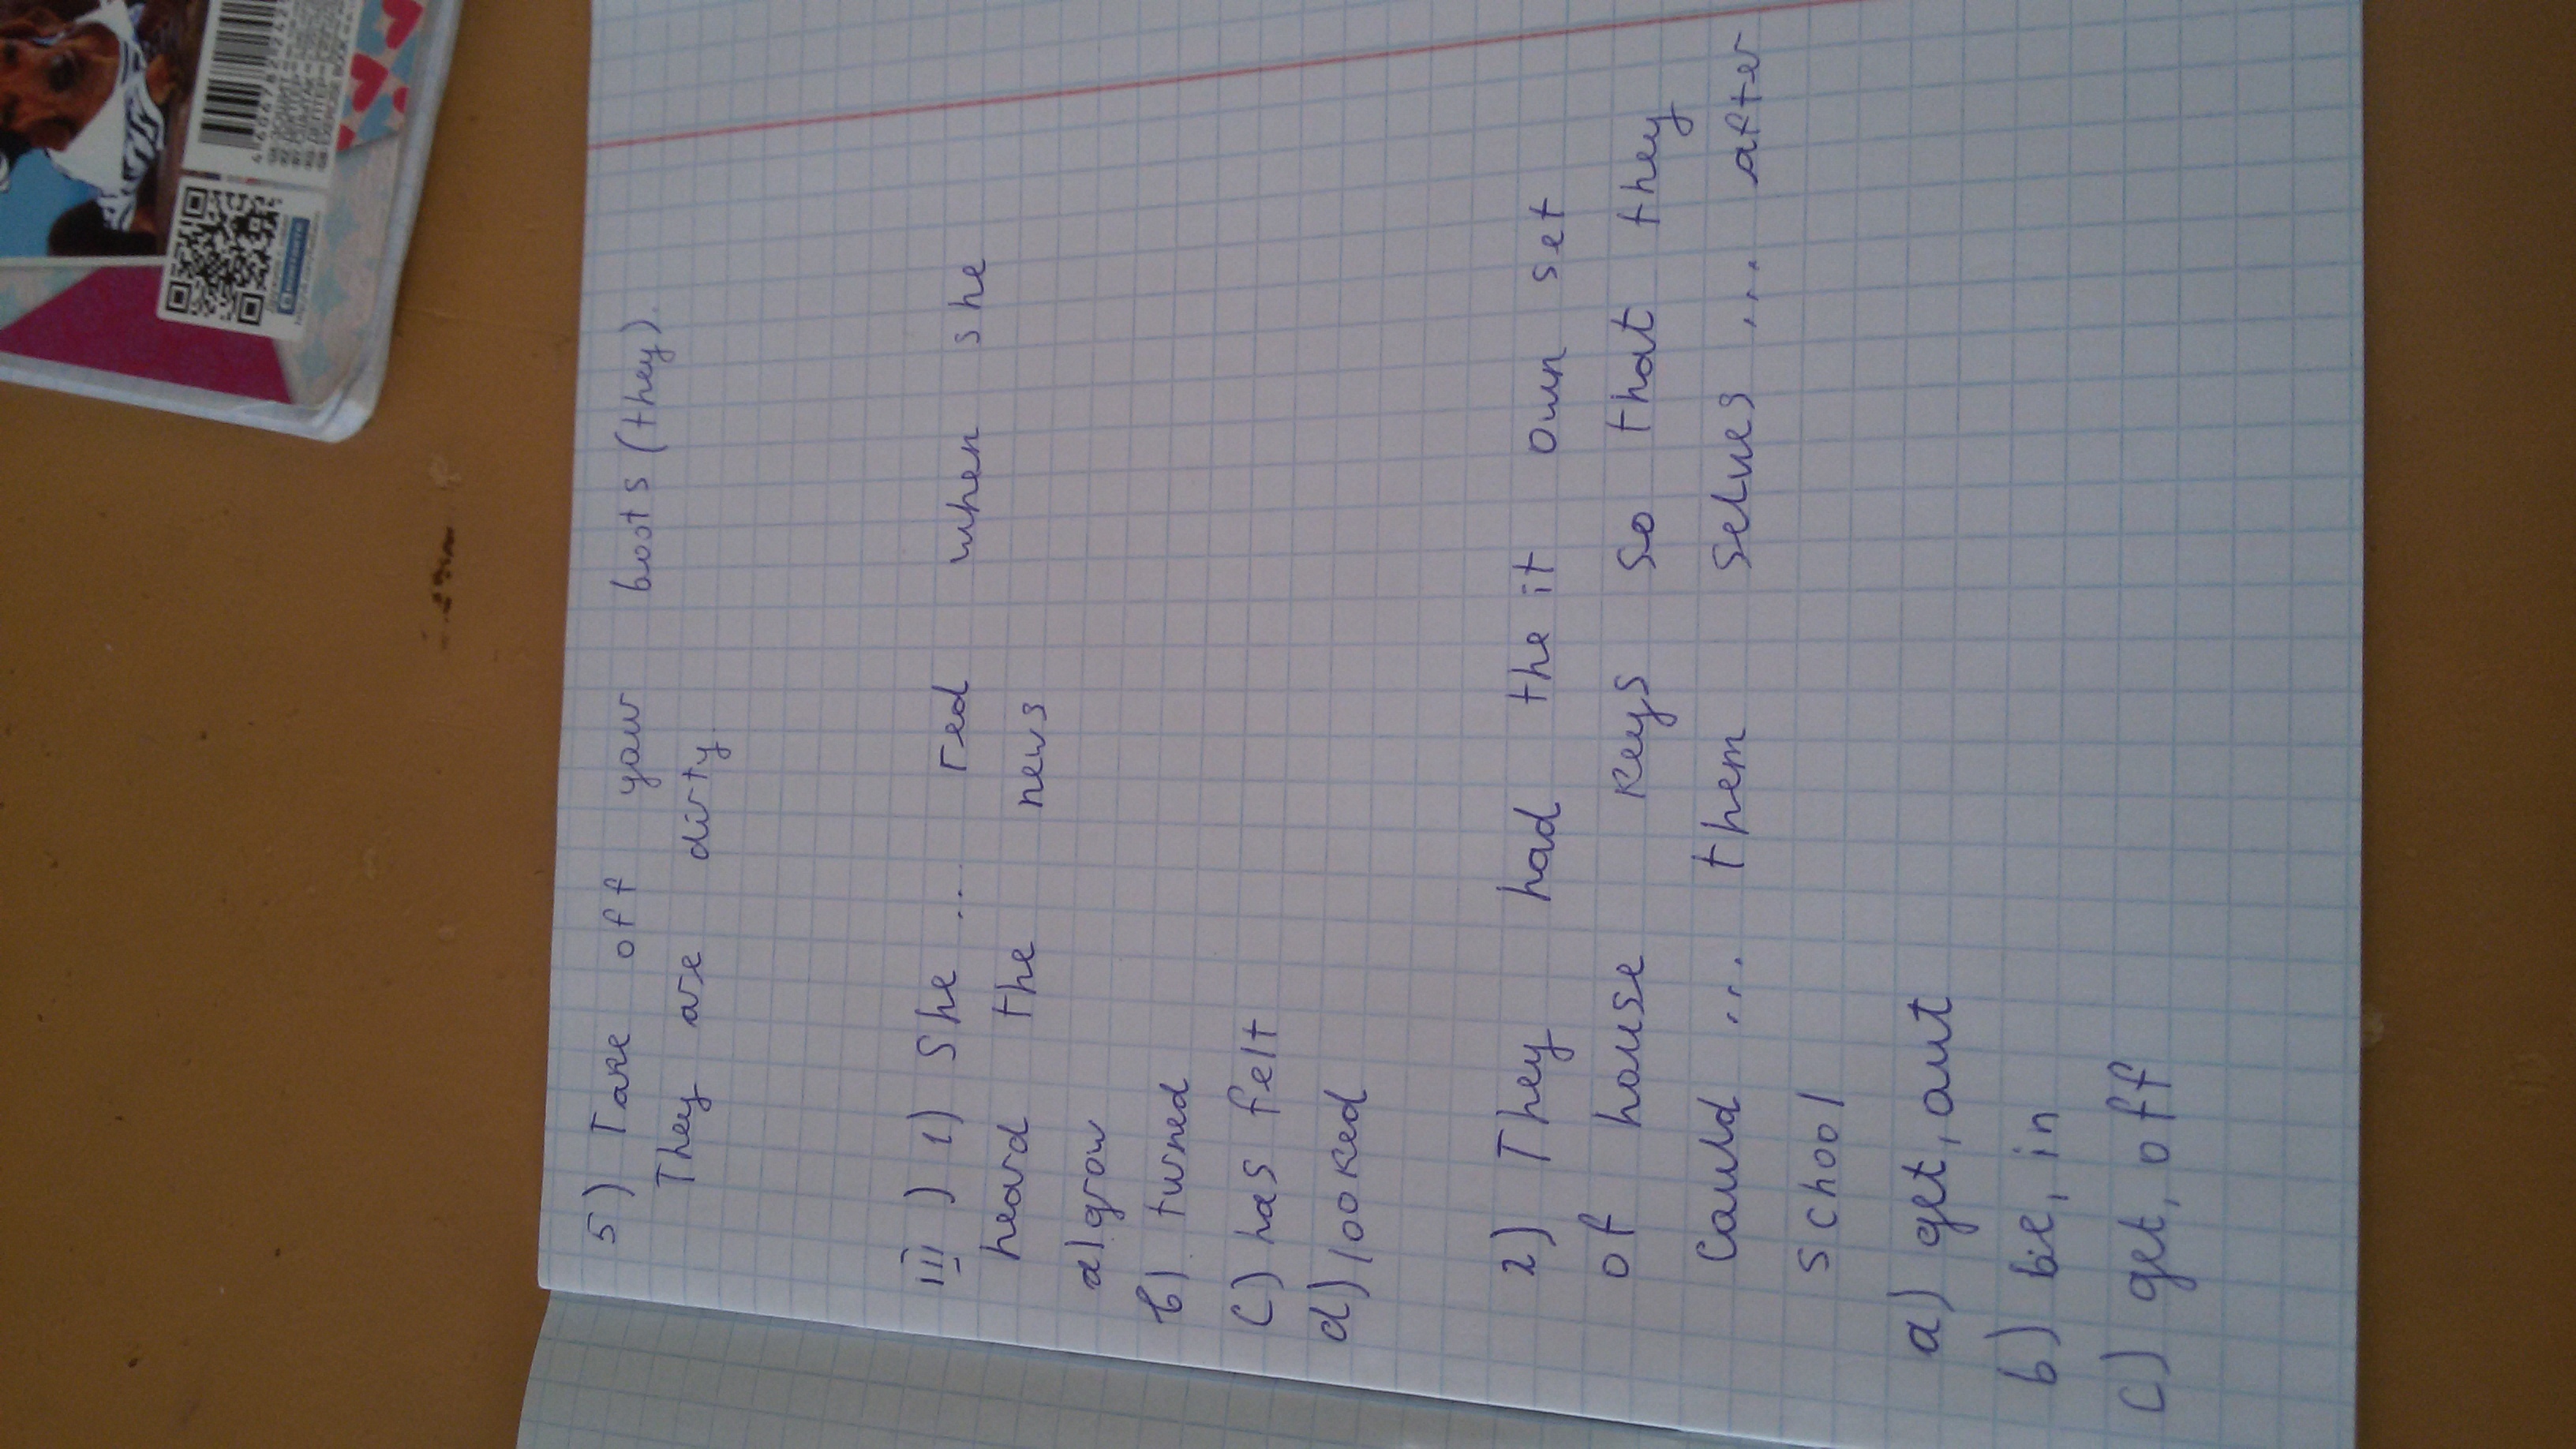 5) Take off your boots (they).
They are dirty.
III) 1) She ... red when she
heard the news
a) grow
b) turned
c) has felt
d) looked
2) They had the it own set
of house keys so that they
Could ... them selves ... after
school
a) get, out
b) be, in
c) get, off